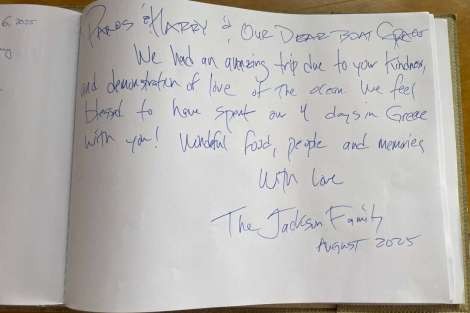 6, 2025
Paros & Harry & Our Dear boat
We had an amazing trip due to your kindness,
and demonstration of love of the ocean. We feel
blessed to have spent our 4 days in Greece
with you! Wonderful food, people and memories
With Love
The Jackson Family
August 2025